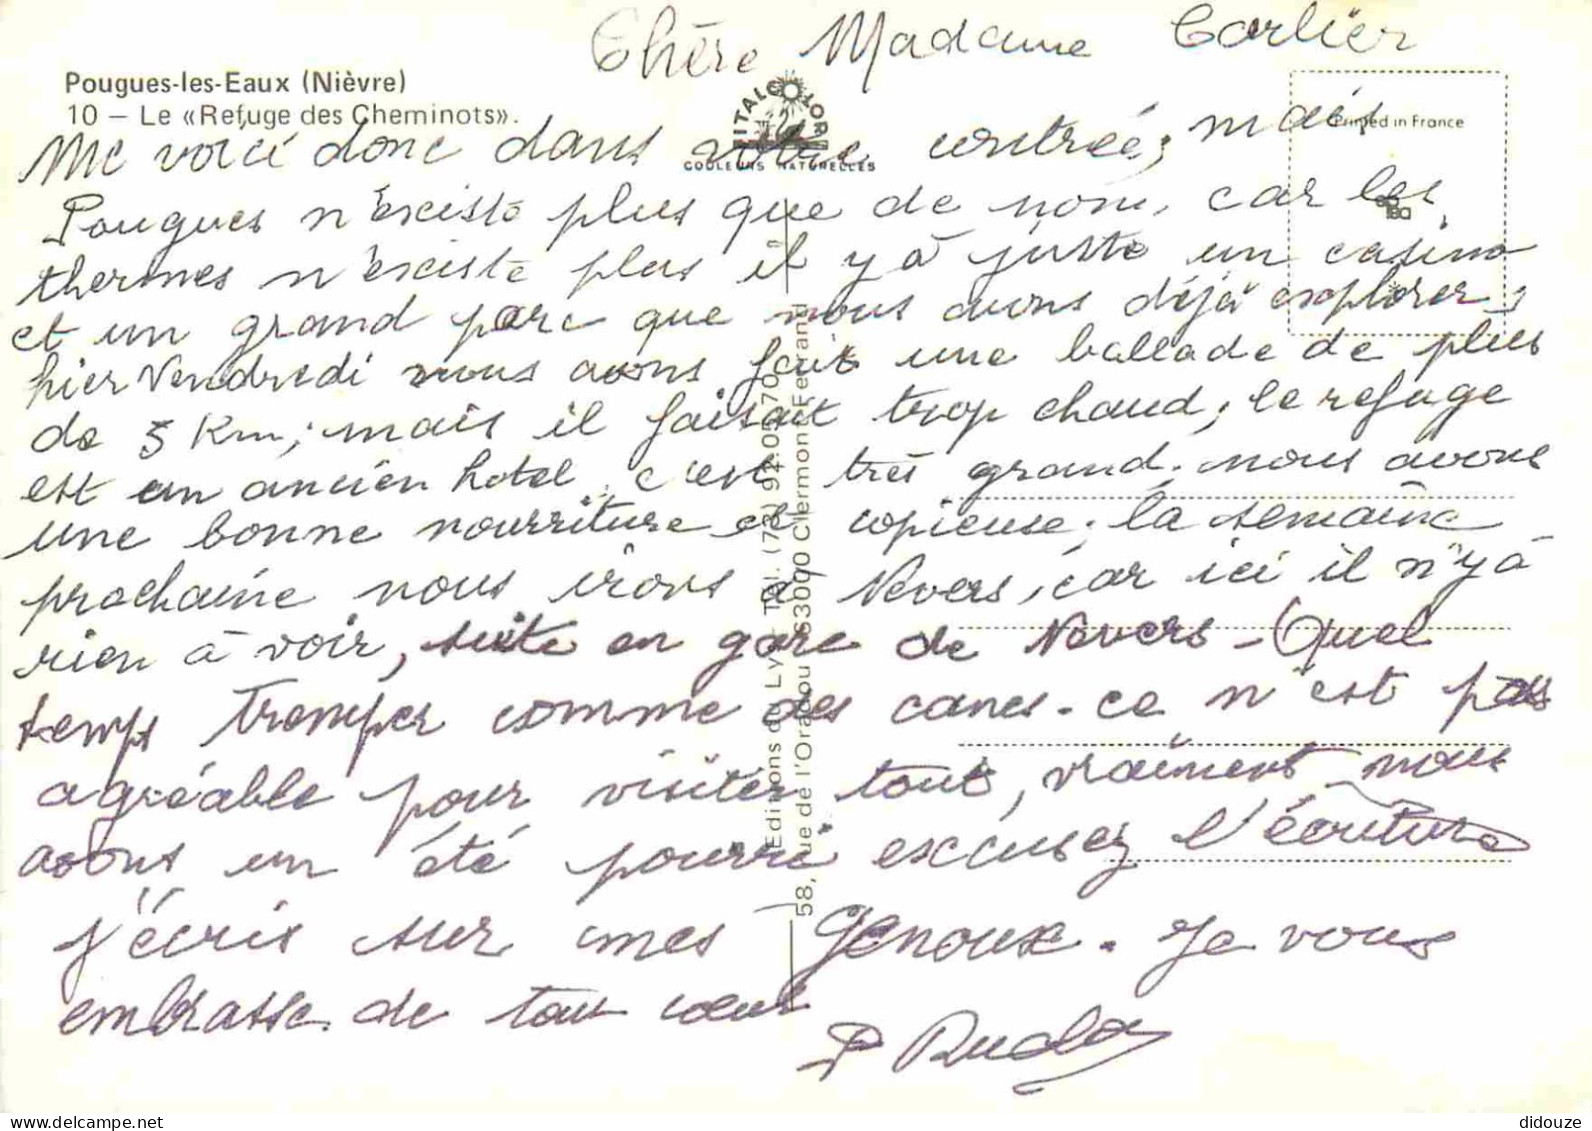 Chère Madame Carlier
Pougues-les-Eaux (Nièvre)
10 – Le «Refuge des Cheminots».
ITALCOLOR
COULEURS NATURELLES
Printed in France
Me voici donc dans votre contrée; mais
Pougues n'existe plus que de nom, car les
thermes n'existe plus il y à juste un casino
et un grand parc que nous avons déjà explorer,
hier Vendredi nous avons fait une ballade de plus
de 5 Km; mais il faisait trop chaud; le refuge
est un ancien hotel, c'est très grand. nous avons
une bonne nourriture et copieuse; la semaine
prochaine nous irons à Nevers, car ici il n'y à
rien à voir, suite en gare de Nevers - Quel
temps tremper comme des canes. ce n'est pas
agréable pour visiter tout, vraiment nous
avons un été pourri excusez l'écriture
j'écris sur mes genoux. Je vous
embrasse de tout cœur
Editions du Lys Tél. (73) 92.09.70
58, rue de l'Oradou 63000 Clermont-Ferrand
didouze